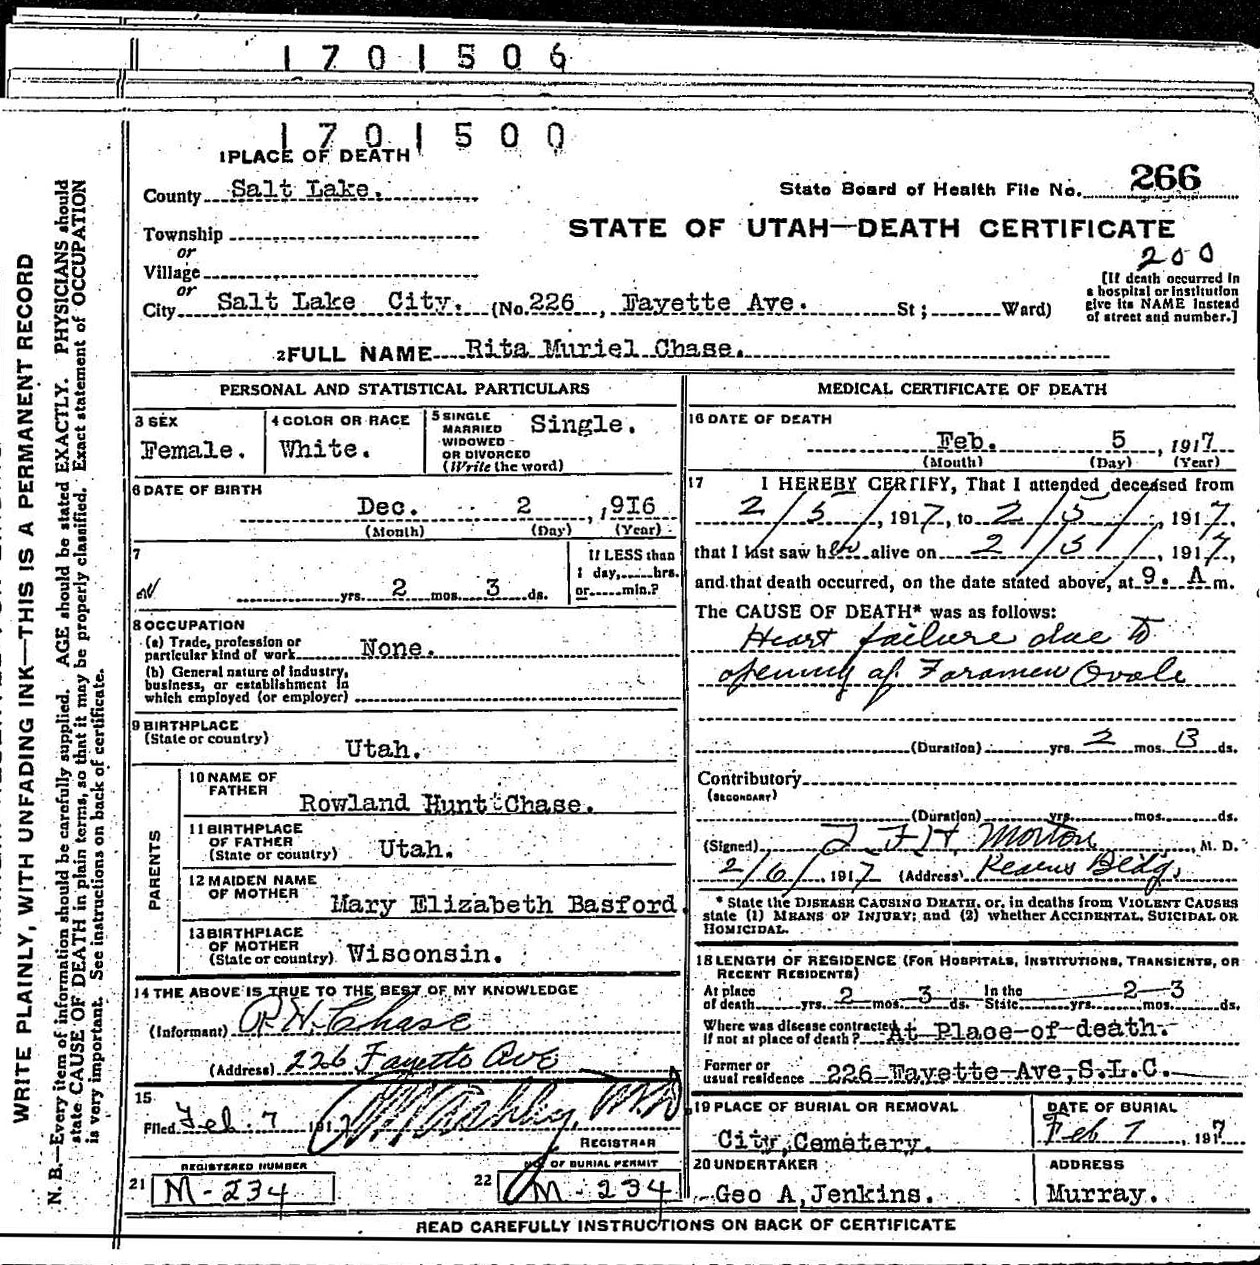 1701506
1701500
1 PLACE OF DEATH
County Salt Lake.
State Board of Health File No. 266
Township
or
Village
or
STATE OF UTAH—DEATH CERTIFICATE
200
[If death occurred in
a hospital or institution
give its NAME instead
of street and number.]
City Salt Lake City. (No. 226, Fayette Ave. St; Ward)
2 FULL NAME Rita Muriel Chase.
PERSONAL AND STATISTICAL PARTICULARS
3 SEX
Female.
4 COLOR OR RACE
White.
5 SINGLE
MARRIED
WIDOWED
OR DIVORCED
(Write the word)
Single.
6 DATE OF BIRTH
Dec. 2, 1916
(Month) (Day) (Year)
7
yrs. 2 mos. 3 ds.
If LESS than
1 day, hrs.
or min.?
8 OCCUPATION
(a) Trade, profession or
particular kind of work None.
(b) General nature of industry,
business, or establishment in
which employed (or employer)
9 BIRTHPLACE
(State or country)
Utah.
PARENTS
10 NAME OF
FATHER
Rowland Hunt Chase.
11 BIRTHPLACE
OF FATHER
(State or country) Utah.
12 MAIDEN NAME
OF MOTHER
Mary Elizabeth Basford.
13 BIRTHPLACE
OF MOTHER
(State or country) Wisconsin.
14 THE ABOVE IS TRUE TO THE BEST OF MY KNOWLEDGE
(Informant) R. H. Chase
(Address) 226 Fayette Ave
15
Filed Feb. 7 1917
M.D.
REGISTRAR
REGISTERED NUMBER
21 M-234
NO OF BURIAL PERMIT
22 M-234
MEDICAL CERTIFICATE OF DEATH
16 DATE OF DEATH
Feb. 5, 1917
(Month) (Day) (Year)
17 I HEREBY CERTIFY, That I attended deceased from
2/5/, 1917, to 2/5/, 1917,
that I last saw her alive on 2/5/, 1917,
and that death occurred, on the date stated above, at 9. A m.
The CAUSE OF DEATH* was as follows:
Heart failure due to
opening of Foramen Ovale
(Duration) yrs. 2 mos. 3 ds.
Contributory
(SECONDARY)
(Duration) yrs. mos. ds.
(Signed) Morton, M. D.
2/6/, 1917 (Address) Kearns Bldg.
* State the DISEASE CAUSING DEATH, or, in deaths from VIOLENT CAUSES
state (1) MEANS OF INJURY; and (2) whether ACCIDENTAL, SUICIDAL OR
HOMICIDAL.
18 LENGTH OF RESIDENCE (FOR HOSPITALS, INSTITUTIONS, TRANSIENTS, OR
RECENT RESIDENTS)
At place
of death yrs. 2 mos. 3 ds.
In the
State yrs. 2 mos. 3 ds.
Where was disease contracted
If not at place of death? At Place of death.
Former or
usual residence 226 Fayette Ave, S.L.C.
19 PLACE OF BURIAL OR REMOVAL
City, Cemetery.
DATE OF BURIAL
Feb 7, 1917
20 UNDERTAKER
Geo A, Jenkins.
ADDRESS
Murray.
READ CAREFULLY INSTRUCTIONS ON BACK OF CERTIFICATE
WRITE PLAINLY, WITH UNFADING INK—THIS IS A PERMANENT RECORD
N. B.—Every item of information should be carefully supplied. AGE should be stated EXACTLY. PHYSICIANS should
state CAUSE OF DEATH in plain terms, so that it may be properly classified. Exact statement of OCCUPATION
is very important. See instructions on back of certificate.